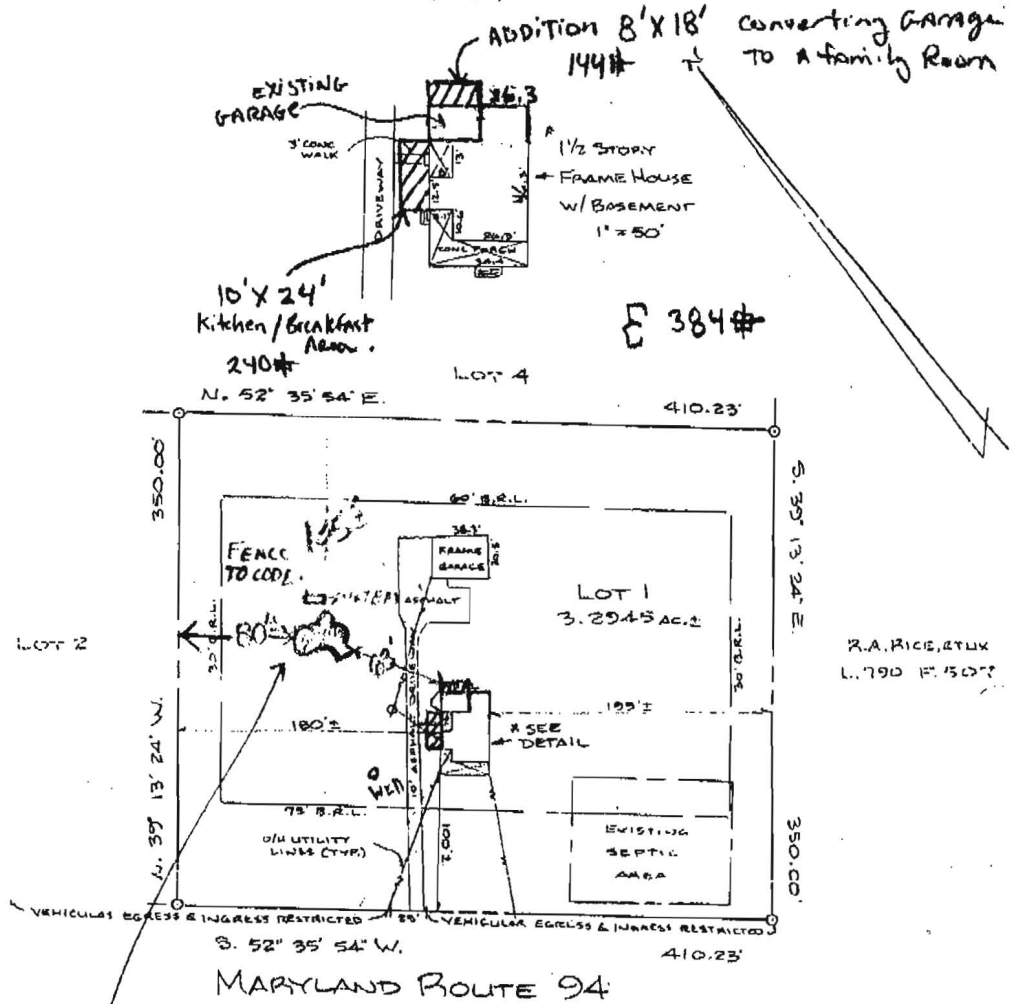 ADDITION 8' X 18' Converting GARAGE
144# TO A family Room
EXISTING
GARAGE
26.3
3' CONC
WALK
13'
12.5'
DRIVEWAY
1 1/2 STORY
FRAME HOUSE
W/ BASEMENT
1" = 50'
46.3'
10.6'
CONC PORCH
10' X 24'
Kitchen / Breakfast
Area.
240#
Σ 384#
LOT 4
N. 52° 35' 54" E.
410.23'
350.00'
S. 39° 13' 24" E.
60' B.R.L.
38.3'
30.5'
FRAME
GARAGE
FENCE
TO CODE.
ASPHALT
LOT 1
3.2945 AC.±
LOT 2
80'
30' B.R.L.
30' B.R.L.
R.A. RICE, ETUX
L. 790 F. 507
180'±
10' ASPHALT DRIVE
199'±
* SEE
DETAIL
N. 39° 13' 24" W.
WELL
75' B.R.L.
O/H UTILITY
LINES (TYP.)
100.2
EXISTING
SEPTIC
AREA
350.00'
VEHICULAR EGRESS & INGRESS RESTRICTED
25'
VEHICULAR EGRESS & INGRESS RESTRICTED
S. 52° 35' 54" W.
410.23'
MARYLAND ROUTE 94